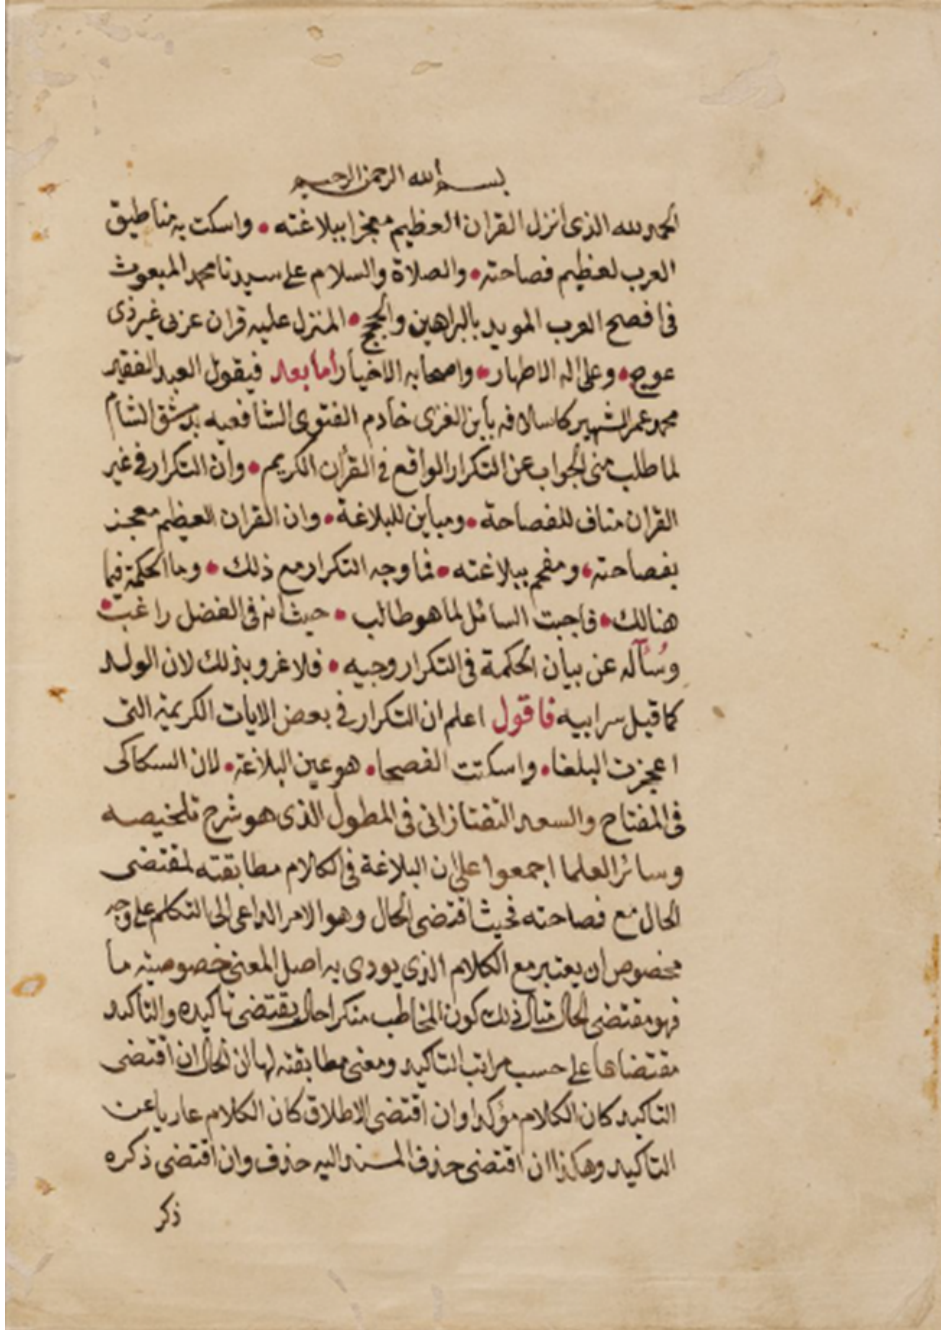 بسم الله الرحمن الرحيم
الحمد لله الذي أنزل القران العظيم معجزا ببلاغته • واسكت به مناطيق
العرب لعظيم فصاحته • والصلاة والسلام على سيدنا محمد المبعوث
في افصح العرب المويد بالبراهين والحجج • المنزل عليه قران عربي غير ذي
عوج • وعلى اله الاطهار • واصحابه الاخيار أما بعد فيقول العبد الفقير
محمد عمر الشهير كاسلافه بابن الغزي خادم الفتوى الشافعيه بدمشق الشام
لما طلب مني الجواب عن التكرار الواقع في القرأن الكريم • وان التكرار في غير
القران مناف للفصاحة • ومباين للبلاغة • وان القران العظيم معجز
بفصاحته • ومفحم ببلاغته • فما وجه التكرار مع ذلك • وما الحكمة فيما
هنالك • فاجبت السائل لما هو طالب • حيث انه في الفضل راغب •
وسُأله عن بيان الحكمة في التكرار وجيه • فلا غرو بذلك لان الولد
كما قيل سر ابيه فاقول اعلم ان التكرار في بعض الايات الكريمة التي
اعجزت البلغا • واسكتت الفصحا • هو عين البلاغة • لان السكاكي
في المفتاح والسعد التفتازاني في المطول الذي هو شرح تلخيصه
وسائر العلما اجمعوا على ان البلاغة في الكلام مطابقته لمقتضى
الحال مع فصاحته فحيث اقتضى الحال وهو الامر الداعي الى التكلم على وجه
مخصوص ان يعتبر مع الكلام الذي يودى به اصل المعنى خصوصية ما
فهو مقتضى الحال مثال ذلك كون المخاطب منكرا حال يقتضي تاكيده والتاكيد
مقتضاها على حسب مراتب التاكيد ومعنى مطابقته لها ان الحال ان اقتضى
التاكيد كان الكلام مؤكدا وان اقتضى الاطلاق كان الكلام عاريا عن
التاكيد وهكذا ان اقتضى حذف المسند اليه حذف وان اقتضى ذكره
ذكر